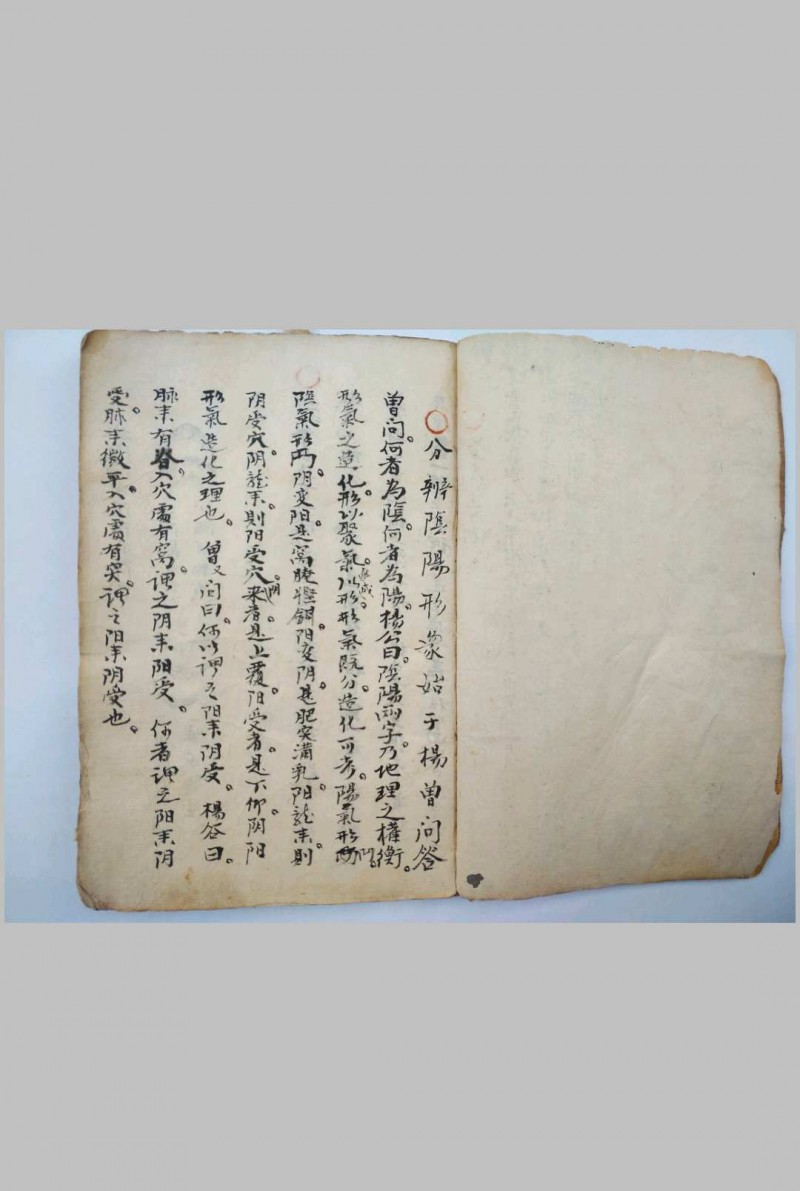 〇分辨陰陽形象始于楊曾問答
曾问。何者為陰。何者為陽。楊公曰。陰陽兩字。乃地理之權衡。
形氣之造化。形以聚氣。氣以成形。形氣既分。造化可考。陽氣形
陰氣形凸。阴变阳。是窩 鉗。阳变阴。是肥突滿乳。阳龍来。則
阴受穴。阴龍来。則阳受穴。阴来者。是上覆。阳受者。是下仰。阴阳
形氣造化之理也。曾又问曰。何以谓之阳来阴受。楊答曰。
脉来有脊。入穴處有窩。谓之阴来阳受。何者谓之阳来阴
受。脉来微平。入穴處有突。谓之阳来阴受也。